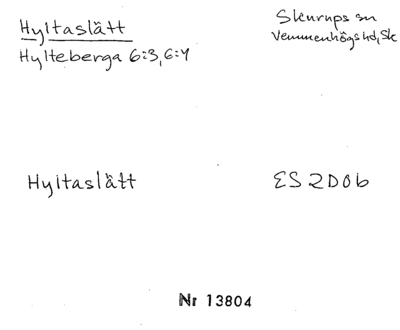 Hyltaslätt
Skurups sn
Hylteberga 6:3, 6:4
Vemmenhögs hd, Sk
Hyltaslätt
ES 2D06
Nr 13804